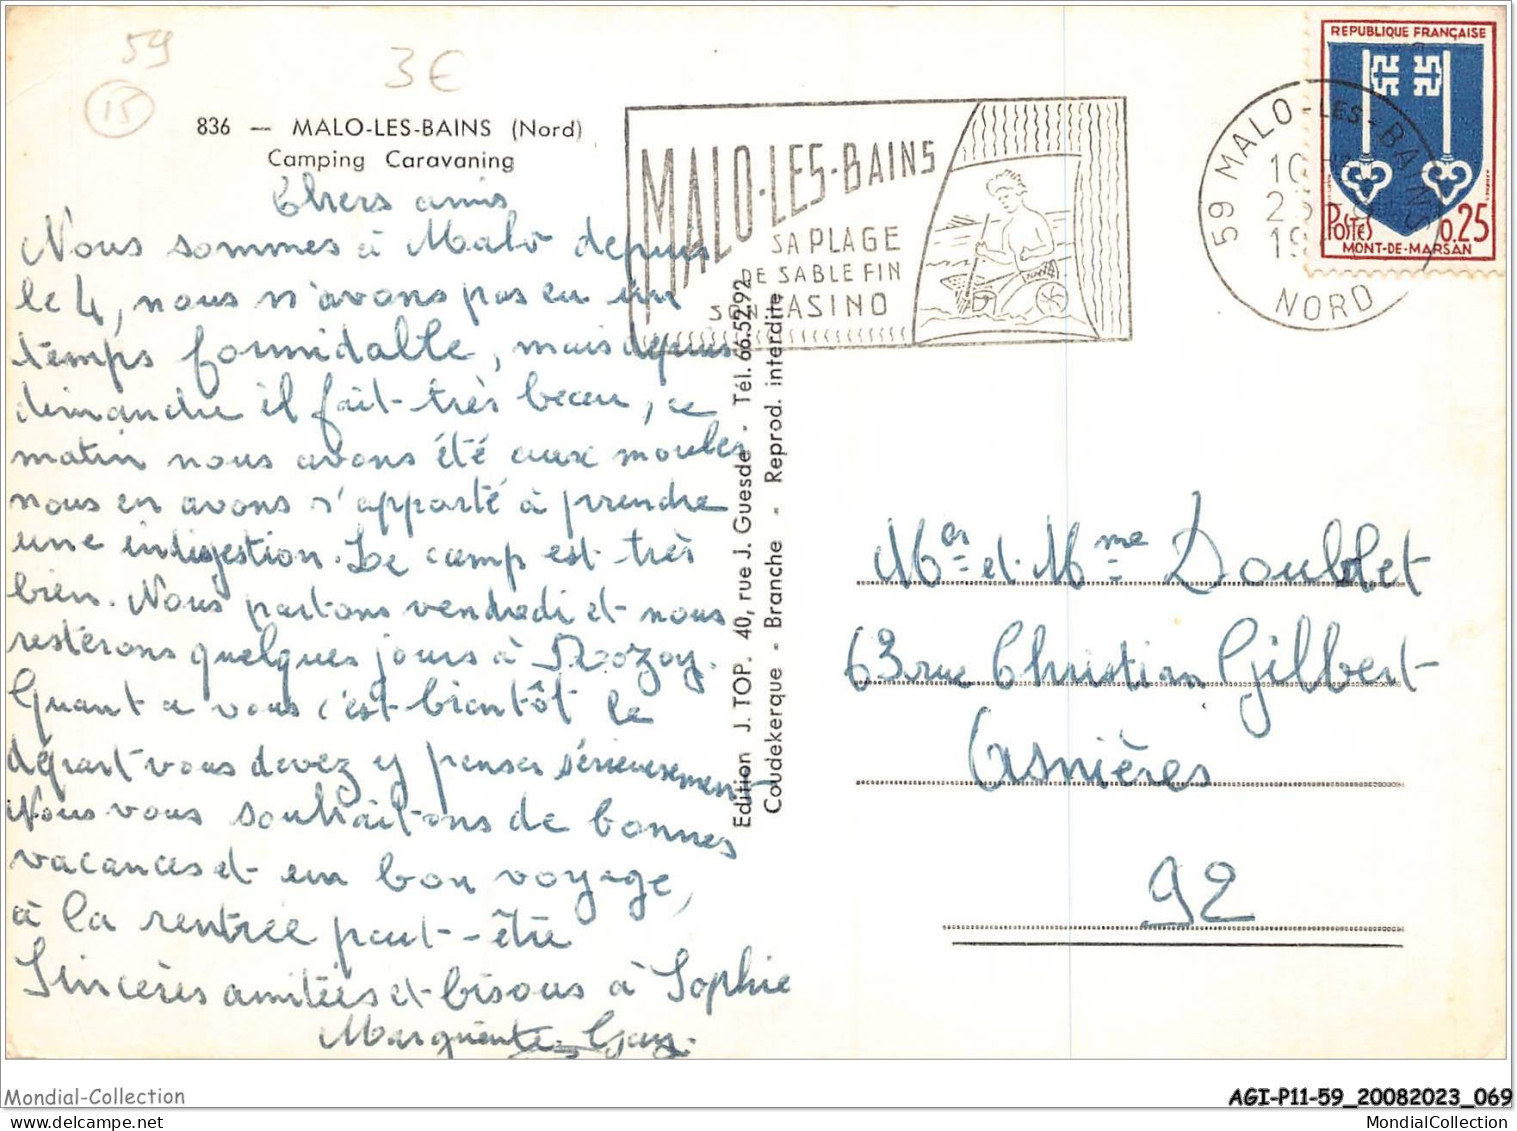 59
3€
15
836 — MALO-LES-BAINS (Nord)
Camping Caravaning
Chers amis
Nous sommes à Malo depuis
le 4, nous n'avons pas eu un
temps formidable, mais depuis
dimanche il fait très beau, ce
matin nous avons été aux moules
nous en avons r'apporté à prendre
une indigestion. Le camp est très
bien. Nous partons vendredi et nous
resterons quelques jours à Rozoy.
Quant a vous c'est bientôt le
départ vous devez y penser sérieusement
Nous vous souhaitons de bonnes
vacances et un bon voyage,
à la rentrée peut-être
Sincères amitiées et bisous à Sophie
Marguerite Guy.
Edition J. TOP. 40, rue J. Guesde - Tél. 66.52.92
Coudekerque - Branche - Reprod. interdite
MALO-LES-BAINS
SA PLAGE
DE SABLE FIN
SON CASINO
59 MALO-LES-BAINS
NORD
REPUBLIQUE FRANÇAISE
POSTES 0,25
MONT-DE-MARSAN
Mr et Mme Doublet
63 rue Christian Gilbert
Asnières
92
Mondial-Collection
AGI-P11-59_20082023_069
MondialCollection
www.delcampe.net